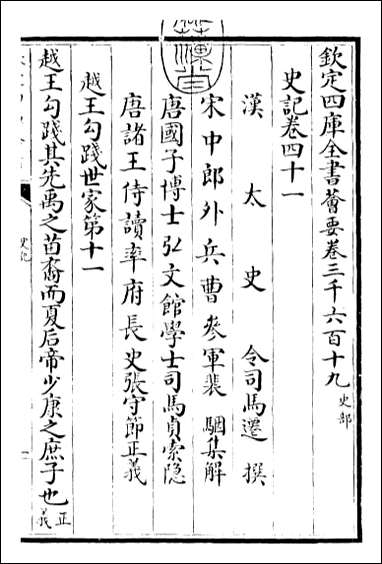 欽定四庫全書薈要卷三千六百十九 史部
史記卷四十一
漢太史令司馬遷撰
宋中郎外兵曹參軍裴駰集解
唐國子博士弘文館學士司馬貞索隱
唐諸王侍讀率府長史張守節正義
越王勾踐世家第十一
越王勾踐其先禹之苗裔而夏后帝少康之庶子也 正義
史記